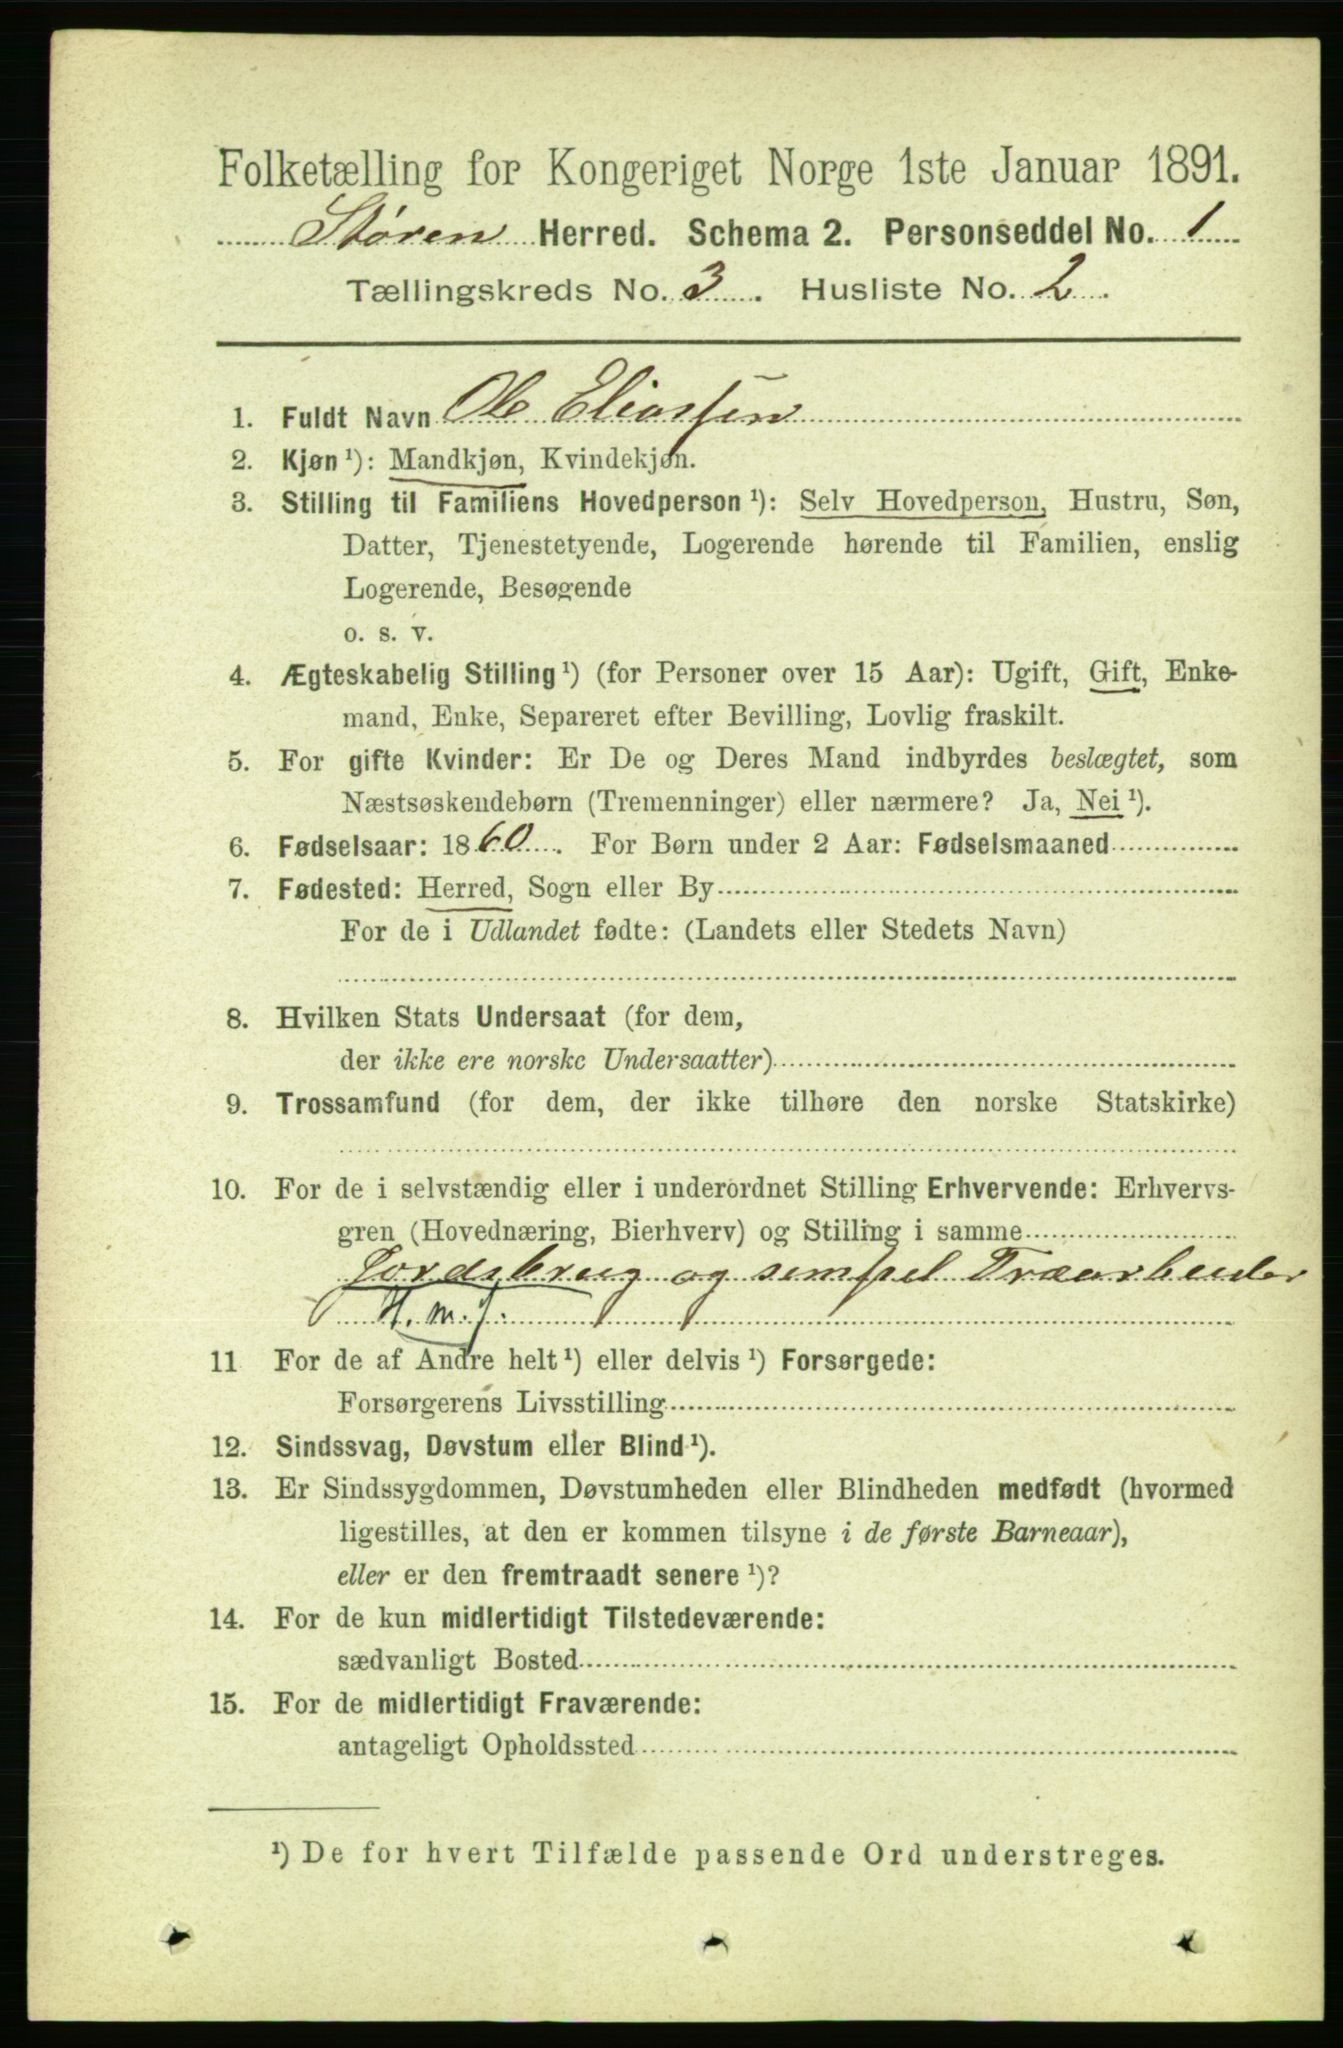 Folketælling for Kongeriget Norge 1ste Januar 1891.
Støren Herred. Schema 2. Personseddel No. 1
Tællingskreds No. 3. Husliste No. 2.
1. Fuldt Navn Ole Eliassen
2. Kjøn ¹): Mandkjøn, Kvindekjøn.
3. Stilling til Familiens Hovedperson ¹): Selv Hovedperson, Hustru, Søn,
Datter, Tjenestetyende, Logerende hørende til Familien, enslig
Logerende, Besøgende
o. s. v.
4. Ægteskabelig Stilling ¹) (for Personer over 15 Aar): Ugift, Gift, Enke-
mand, Enke, Separeret efter Bevilling, Lovlig fraskilt.
5. For gifte Kvinder: Er De og Deres Mand indbyrdes beslægtet, som
Næstsøskendebørn (Tremenninger) eller nærmere? Ja, Nei ¹).
6. Fødselsaar: 1860. For Børn under 2 Aar: Fødselsmaaned
7. Fødested: Herred, Sogn eller By
For de i Udlandet fødte: (Landets eller Stedets Navn)
8. Hvilken Stats Undersaat (for dem,
der ikke ere norske Undersaatter)
9. Trossamfund (for dem, der ikke tilhøre den norske Statskirke)
10. For de i selvstændig eller i underordnet Stilling Erhvervende: Erhvervs-
gren (Hovednæring, Bierhverv) og Stilling i samme
Jordsbrug og simpel Træarbeider
H. m. j.
11 For de af Andre helt ¹) eller delvis ¹) Forsørgede:
Forsørgerens Livsstilling
12. Sindssvag, Døvstum eller Blind ¹).
13. Er Sindssygdommen, Døvstumheden eller Blindheden medfødt (hvormed
ligestilles, at den er kommen tilsyne i de første Barneaar),
eller er den fremtraadt senere ¹)?
14. For de kun midlertidigt Tilstedeværende:
sædvanligt Bosted
15. For de midlertidigt Fraværende:
antageligt Opholdssted
¹) De for hvert Tilfælde passende Ord understreges.